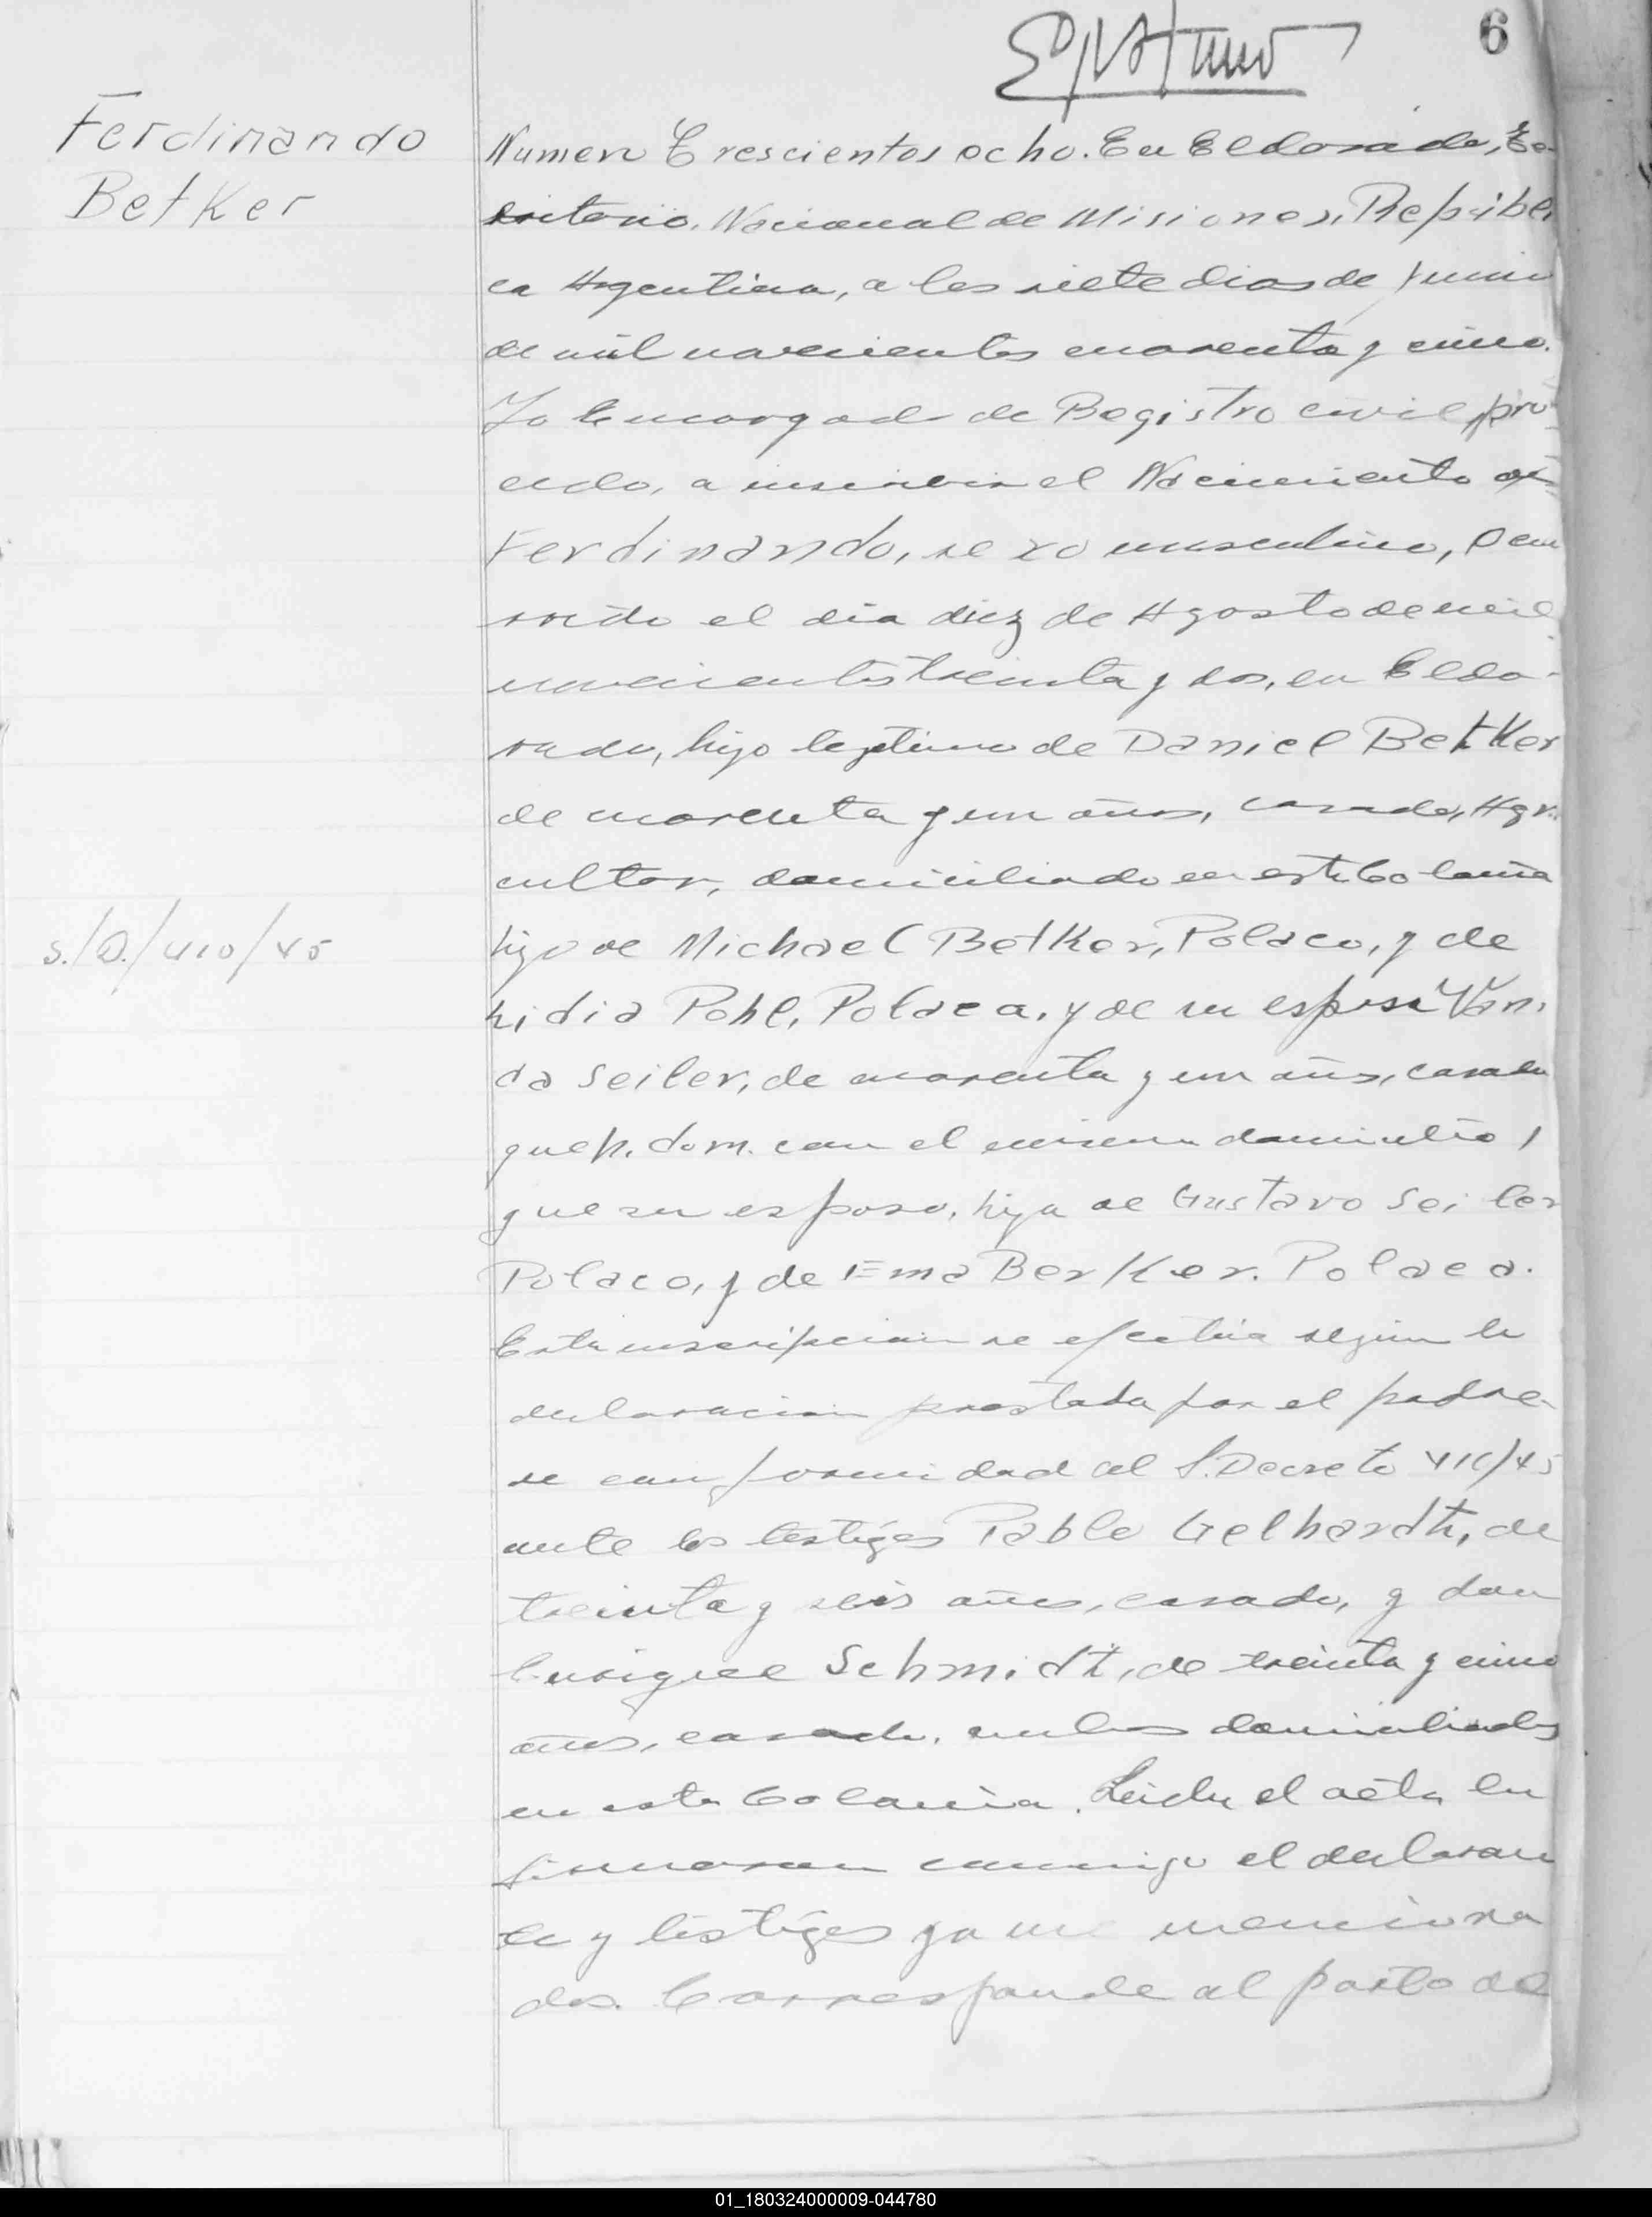 6
Ferdinando
Betker
Numero Trescientos ocho. En Eldorado, Te-
rritorio. Nacional de Misiones, Repúbli
ca Argentina, a los siete dias de Junio
de mil novecientos cuarenta y cinco.
Yo Encargado de Registro civil pro-
cedo, a inscribir el Nacimiento de
Ferdinando, sexo masculino, Ocu
rrido el día diez de Agosto de mil
novecientos treinta y dos, en Eldo-
rado, hijo legitimo de Daniel Betker
de cuarenta y un años, casado, Agri
cultor, domiciliado en esta Colonia
hijo de Michael Betker, Polaco, y de
Lidia Pohl, Polaca. y de su esposa Van.
da Seiler, de cuarenta y un años, casada
queh. dom. con el mismo domicilio
que su esposo, hija de Gustavo Seiler
Polaco, y de Ema Berker. Polaca.
Esta inscripcion se efectúa según la
declaracion prestada por el padre
de conformidad al S. Decreto 410/45
ante los testigos Pablo Gelhardt, de
treinta y seis años, casado, y don
Enrique Schmidt, de treinta y cinco
años, casado, ambos domiciliados
en esta Colonia. Leida el acta la
firmaron conmigo el declaran
te y testigos ya menciona
dos. Corresponde al parto de
S./D./410/45
01_180324000009-044780